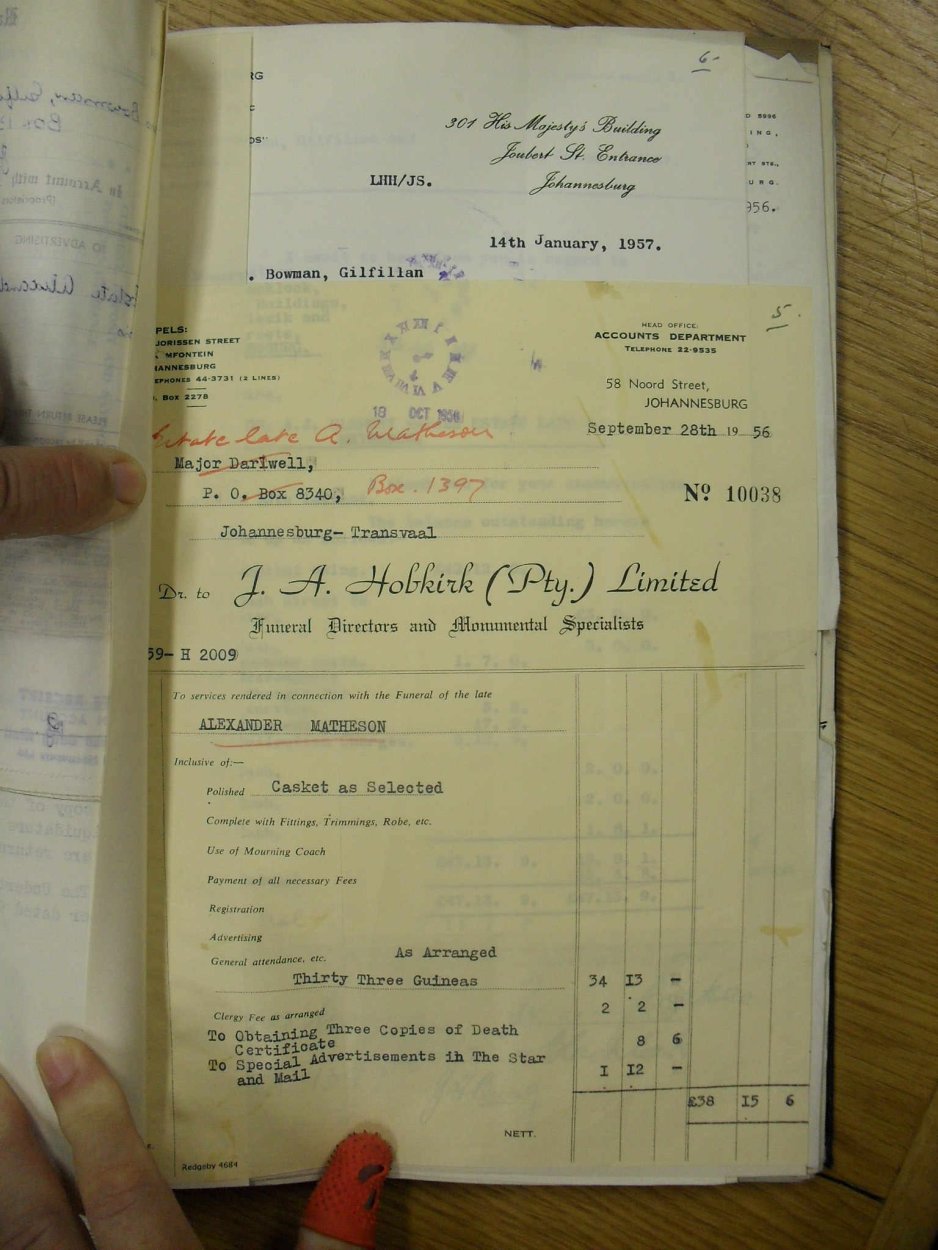 6-
301 His Majesty's Building
Joubert St. Entrance
LHH/JS. Johannesburg
956.
14th January, 1957.
. Bowman, Gilfillan
5.
PELS:
JORISSEN STREET
MFONTEIN
HANNESBURG
EPHONES 44-3731 (2 LINES)
. BOX 2278
HEAD OFFICE:
ACCOUNTS DEPARTMENT
TELEPHONE 22-9535
58 Noord Street,
JOHANNESBURG
18 OCT 1956
September 28th 19 56
Estate late A. Matheson
Major Dartwell,
P. O. Box 8340, Box. 1397
No. 10038
Johannesburg- Transvaal
Dr. to J. A. Hobkirk (Pty.) Limited
Funeral Directors and Monumental Specialists
59- H 2009
To services rendered in connection with the Funeral of the late
ALEXANDER MATHESON
Inclusive of:—
Polished Casket as Selected
Complete with Fittings, Trimmings, Robe, etc.
Use of Mourning Coach
Payment of all necessary Fees
Registration
Advertising
General attendance, etc. As Arranged
Thirty Three Guineas 34 13 -
Clergy Fee as arranged 2 2 -
To Obtaining Three Copies of Death
Certificate 8 6
To Special Advertisements in The Star
and Mail 1 12 -
£38 15 6
NETT.
Redgeby 4684